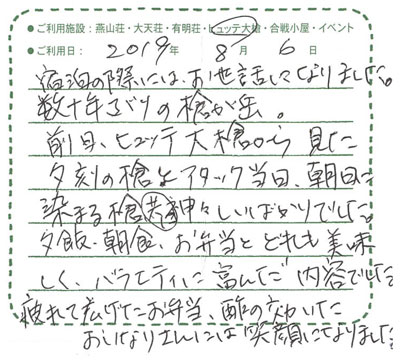 ●ご利用施設：燕山荘・大天荘・有明荘・ヒュッテ大槍・合戦小屋・イベント
●ご利用日： 2019年 8月 6日
宿泊の際には、お世話になりました。
数十年ぶりの槍が岳。
前日、ヒュッテ大槍から見た
夕刻の槍とアタック当日、朝日に
染まる槍共に神々しいばかりでした。
夕飯、朝食、お弁当とどれも美味
しく、バラエティに富んだ内容でした。
疲れて広げたお弁当、酢の効いた
おいなりさんには笑顔になりました。